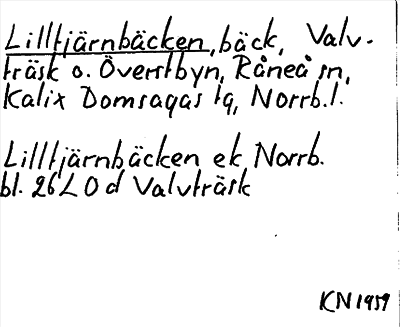 Lilltjärnbäcken, bäck, Valv-
träsk o. Överstbyn, Råneå sn,
Kalix Domsagas tg, Norrb.l.
Lilltjärnbäcken ek Norrb.
bl. 26L 0d Valvträsk
KN 1959